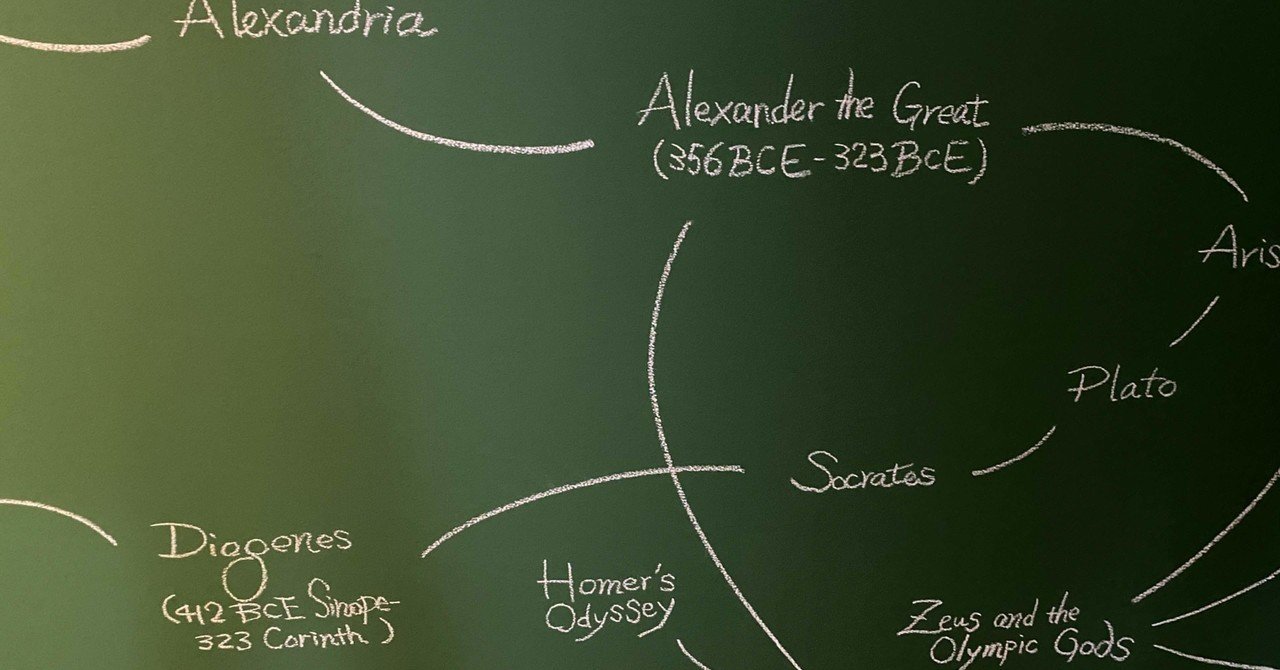 Alexandria
Alexander the Great
(356 BCE - 323 BCE)
Aris
Plato
Socrates
Diogenes
(412 BCE Sinope-
323 Corinth)
Homer's
Odyssey
Zeus and the
Olympic Gods